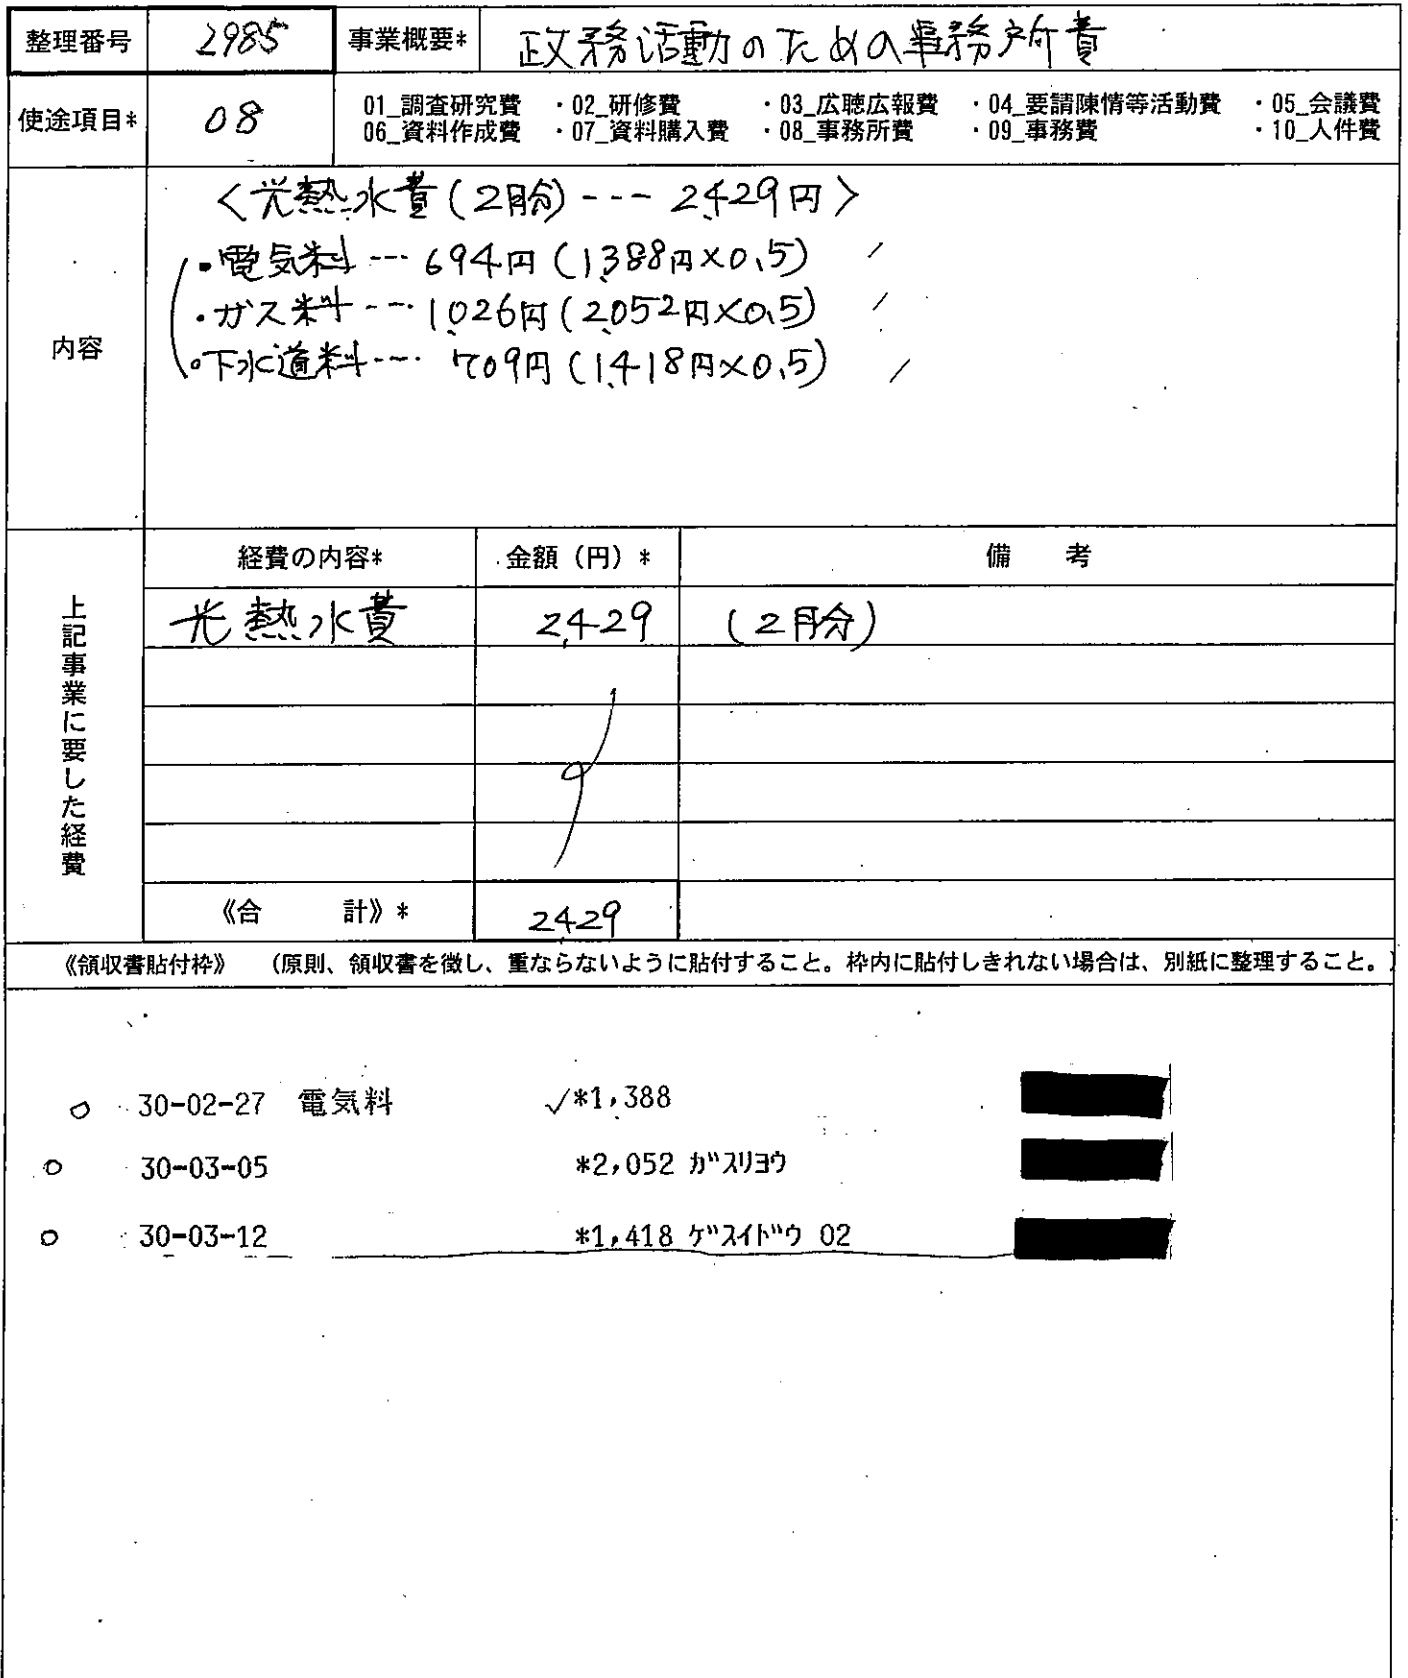 整理番号 2985 事業概要* 政務活動のための事務所費
使途項目* 08 01_調査研究費 ・02_研修費 ・03_広聴広報費 ・04_要請陳情等活動費 ・05_会議費
06_資料作成費 ・07_資料購入費 ・08_事務所費 ・09_事務費 ・10_人件費
内容
<光熱水費(2月分)--- 2,429円>
・電気料--- 694円(1,388円×0.5)
・ガス料--- 1,026円(2,052円×0.5)
・下水道料---- 709円(1,418円×0.5)
上記事業に要した経費
経費の内容* 金額（円）* 備 考
光熱水費 2,429 (2月分)
《合 計》* 2,429
《領収書貼付枠》 （原則、領収書を徴し、重ならないように貼付すること。枠内に貼付しきれない場合は、別紙に整理すること。）
30-02-27 電気料 ✓*1,388
30-03-05 *2,052 ｶﾞｽﾘﾖｳ
30-03-12 *1,418 ｹﾞｽｲﾄﾞｳ 02